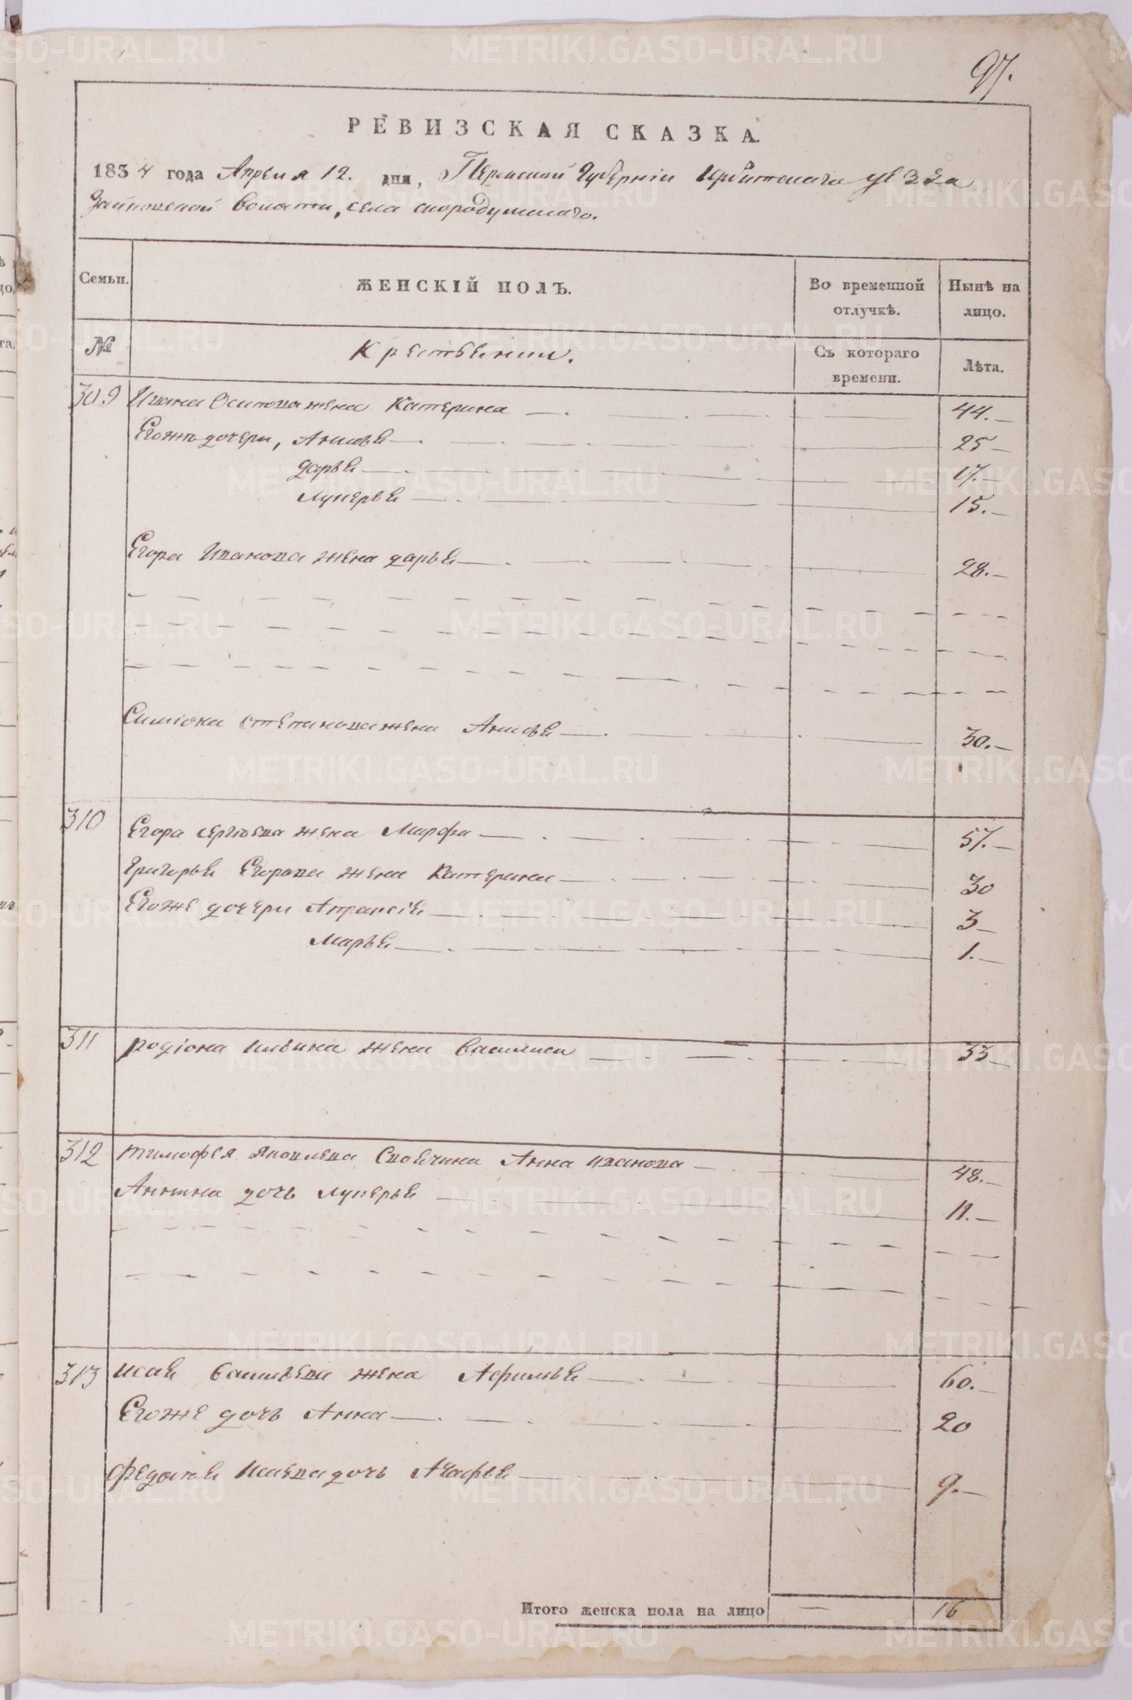 97.
РЕВИЗСКАЯ СКАЗКА.
1834 года Апреля 12. дня, Пермской Губерніи Ирбитскаго уезда
волости, села скородумскаго.
Семьи. ЖЕНСКІЙ ПОЛЪ. Во временной отлучкѣ. Нынѣ на лицо.
№ Крестьянки. Съ котораго времени. Лѣта.
309 Ивана Осипова жена Катерина 44.
Егожъ дочери, Анисья 25
Дарья 17.
Лукерья 15.
Егора Иванова жена дарья 28.
Симіона степанова жена Анисья 30.
310 Егора сергѣева жена Марфа 57.
Григорья Егорова жена Катерина 30
Егоже дочери Апраксія 3
Марья 1.
311 родіона ильина жена Василиса 33
312 тимофея яковлева Анна иванова 48.
Аннина дочь лукерья 11.
313 исая васильева жена Афимья 60.
Егоже дочь Анна 20
федотья Исаева дочь Агафья 9.
Итого женска пола на лицо — 16
METRIKI.GASO-URAL.RU